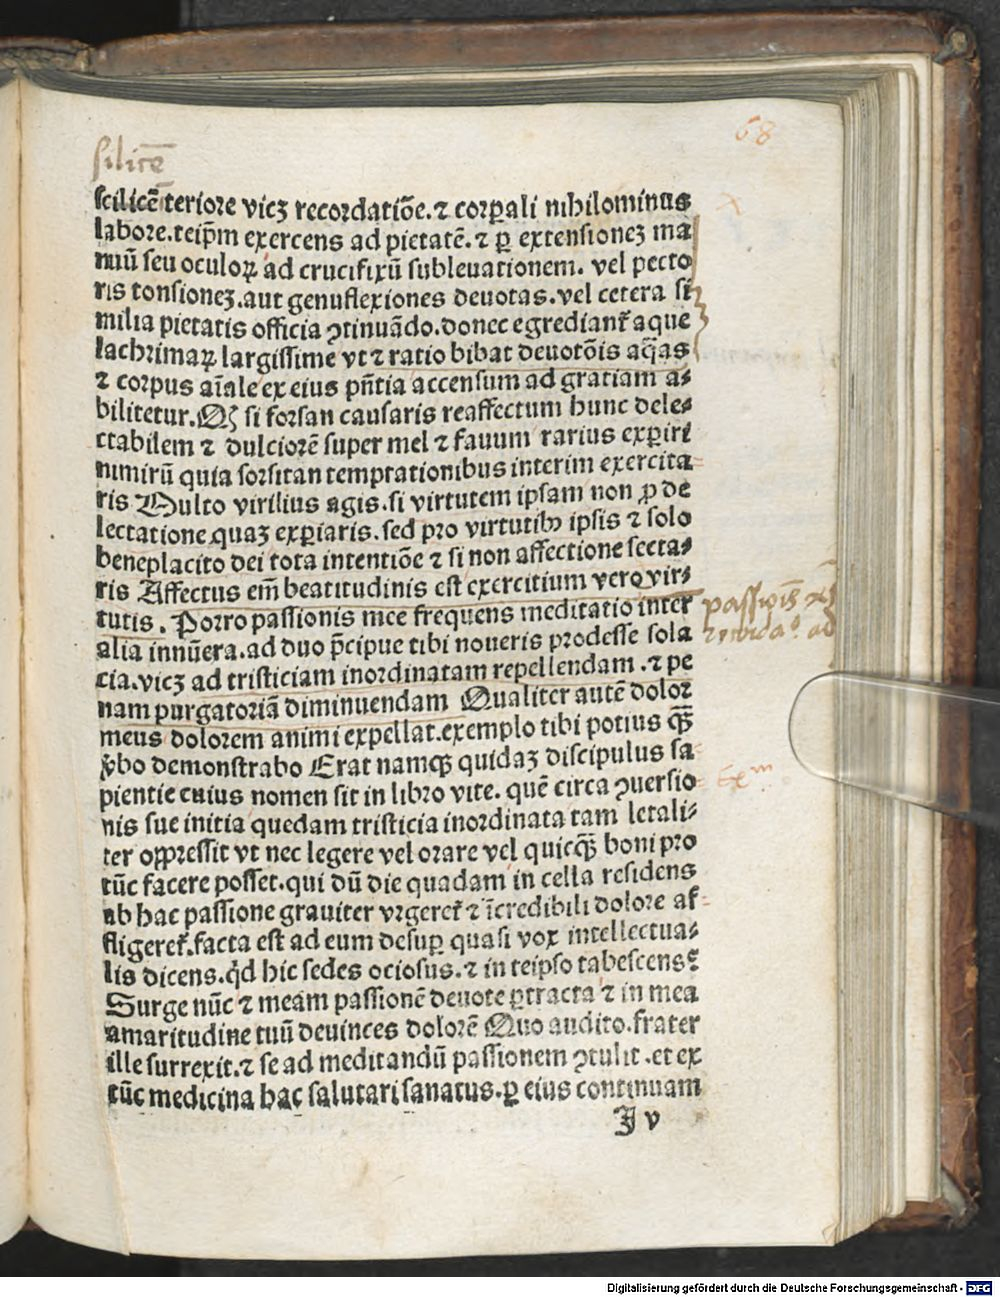 68
silicē
scilicē teriore vicꝫ recordatiōe. ⁊ corꝑali nihilominus
labore. teip̄m exercens ad pietatē. ⁊ ꝑ extensioneꝫ ma
nuū seu oculoꝝ ad crucifixū subleuationem. vel pecto
ris tonsioneꝫ. aut genuflexiones deuotas. vel cetera si
milia pietatis officia ꝯtinuādo. donec egredianṫ aque
lachrimaꝝ largissime vt ⁊ ratio bibat deuotōis aq̄as
⁊ corpus aīale ex eius pn̄tia accensum ad gratiam a⸗
bilitetur. Qꝫ si forsan causaris reaffectum hunc dele⸗
ctabilem ⁊ dulciorē super mel ⁊ fauum rarius exꝑiri
nimirū quia forsitan temptationibus interim exercita
ris Multo virilius agis. si virtutem ipsam non ꝓ de
lectatione quaꝫ exꝑiaris. sed pro virtutibꝫ ipsis ⁊ solo
beneplacito dei tota intentiōe ⁊ si non affectione secta⸗
ris Affectus em̄ beatitudinis est exercitium vero vir⸗
tutis. Porro passionis mee frequens meditatio inter
alia innūera. ad duo p̄cipue tibi noueris prodesse sola
cia. vicꝫ ad tristiciam inordinatam repellendam. ⁊ pe
nam purgatoriā diminuendam Qualiter autē dolor
meus dolorem animi expellat. exemplo tibi potius qꝫ̄
v̄bo demonstrabo Erat namqꝫ quidaꝫ discipulus sa
pientie cuius nomen sit in libro vite. quē circa ꝯuersio
nis sue initia quedam tristicia inordinata tam letali⸗
ter oppressit vt nec legere vel orare vel quicqꝫ̄ boni pro
tūc facere posset. qui dū die quadam in cella residens
ab hac passione grauiter vrgereṫ ⁊ īcredibili dolore af
fligereṫ. facta est ad eum desuꝑ quasi vox intellectua⸗
lis dicens. qͥd hic sedes ociosus. ⁊ in teipso tabescens?
Surge nūc ⁊ meam passionē deuote ꝑtracta ⁊ in mea
amaritudine tuū deuinces dolorē Quo audito. frater
ille surrexit. ⁊ se ad meditandū passionem ꝯtulit. et ex
tūc medicina hac salutari sanatus. ꝑ eius continuam
J v
Exᵐ
Digitalisierung gefördert durch die Deutsche Forschungsgemeinschaft - DFG